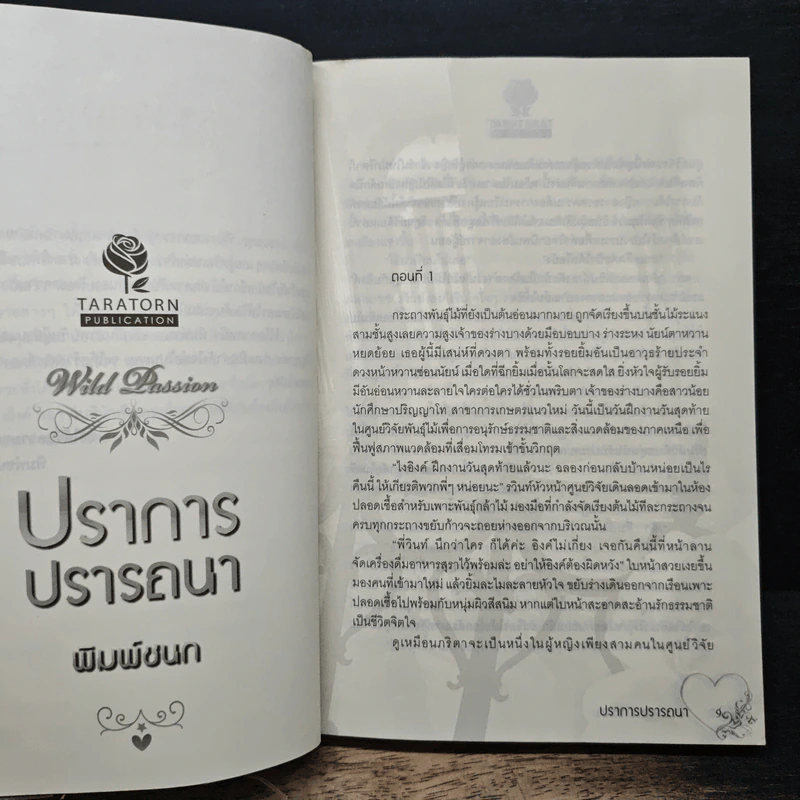 TARATORN
PUBLICATION
Wild Passion
ปราการ
ปรารถนา
พิมพ์ชนก
ตอนที่ 1
กระถางพันธุ์ไม้ที่ยังเป็นต้นอ่อนมากมาย ถูกจัดเรียงขึ้นบนชั้นไม้ระแนง
สามชั้นสูงเลยความสูงเจ้าของร่างบางด้วยมือบอบบาง ร่างระหง นัยน์ตาหวาน
หยดย้อย เธอผู้นี้มีเสน่ห์ที่ดวงตา พร้อมทั้งรอยยิ้มอันเป็นอาวุธร้ายประจำ
ดวงหน้าหวานซ่อนนัยน์ เมื่อใดที่ฉีกยิ้มเมื่อนั้นโลกจะสดใส ยิ่งหัวใจผู้รับรอยยิ้ม
มีอันอ่อนหวานละลายใจใครต่อใครได้ชั่วในพริบตา เจ้าของร่างบางคือสาวน้อย
นักศึกษาปริญญาโท สาขาการเกษตรแนวใหม่ วันนี้เป็นวันฝึกงานวันสุดท้าย
ในศูนย์วิจัยพันธุ์ไม้เพื่อการอนุรักษ์ธรรมชาติและสิ่งแวดล้อมของภาคเหนือ เพื่อ
ฟื้นฟูสภาพแวดล้อมที่เสื่อมโทรมเข้าขั้นวิกฤต
“ไงอิงค์ ฝึกงานวันสุดท้ายแล้วนะ ฉลองก่อนกลับบ้านหน่อยเป็นไร
คืนนี้ ให้เกียรติพวกพี่ๆ หน่อยนะ” รวินท์หัวหน้าศูนย์วิจัยเดินลอดเข้ามาในห้อง
ปลอดเชื้อสำหรับเพาะพันธุ์กล้าไม้ มองมือที่กำลังจัดเรียงต้นไม้ทีละกระถางจน
ครบทุกกระถางขยับก้าวจะถอยห่างออกจากบริเวณนั้น
“พี่วินท์ นึกว่าใคร ก็ได้ค่ะ อิงค์ไม่เกี่ยง เจอกันคืนนี้ที่หน้าลาน
จัดเครื่องดื่มอาหารสุราไว้พร้อมล่ะ อย่าให้อิงค์ต้องผิดหวัง” ใบหน้าสวยเงยขึ้น
มองคนที่เข้ามาใหม่ แล้วยิ้มละไมละลายหัวใจ ขยับร่างเดินออกจากเรือนเพาะ
ปลอดเชื้อไปพร้อมกับหนุ่มผิวสีสนิม หากแต่ใบหน้าสะอาดสะอ้านรักธรรมชาติ
เป็นชีวิตจิตใจ
ดูเหมือนภริตาจะเป็นหนึ่งในผู้หญิงเพียงสามคนในศูนย์วิจัย
ปราการปรารถนา